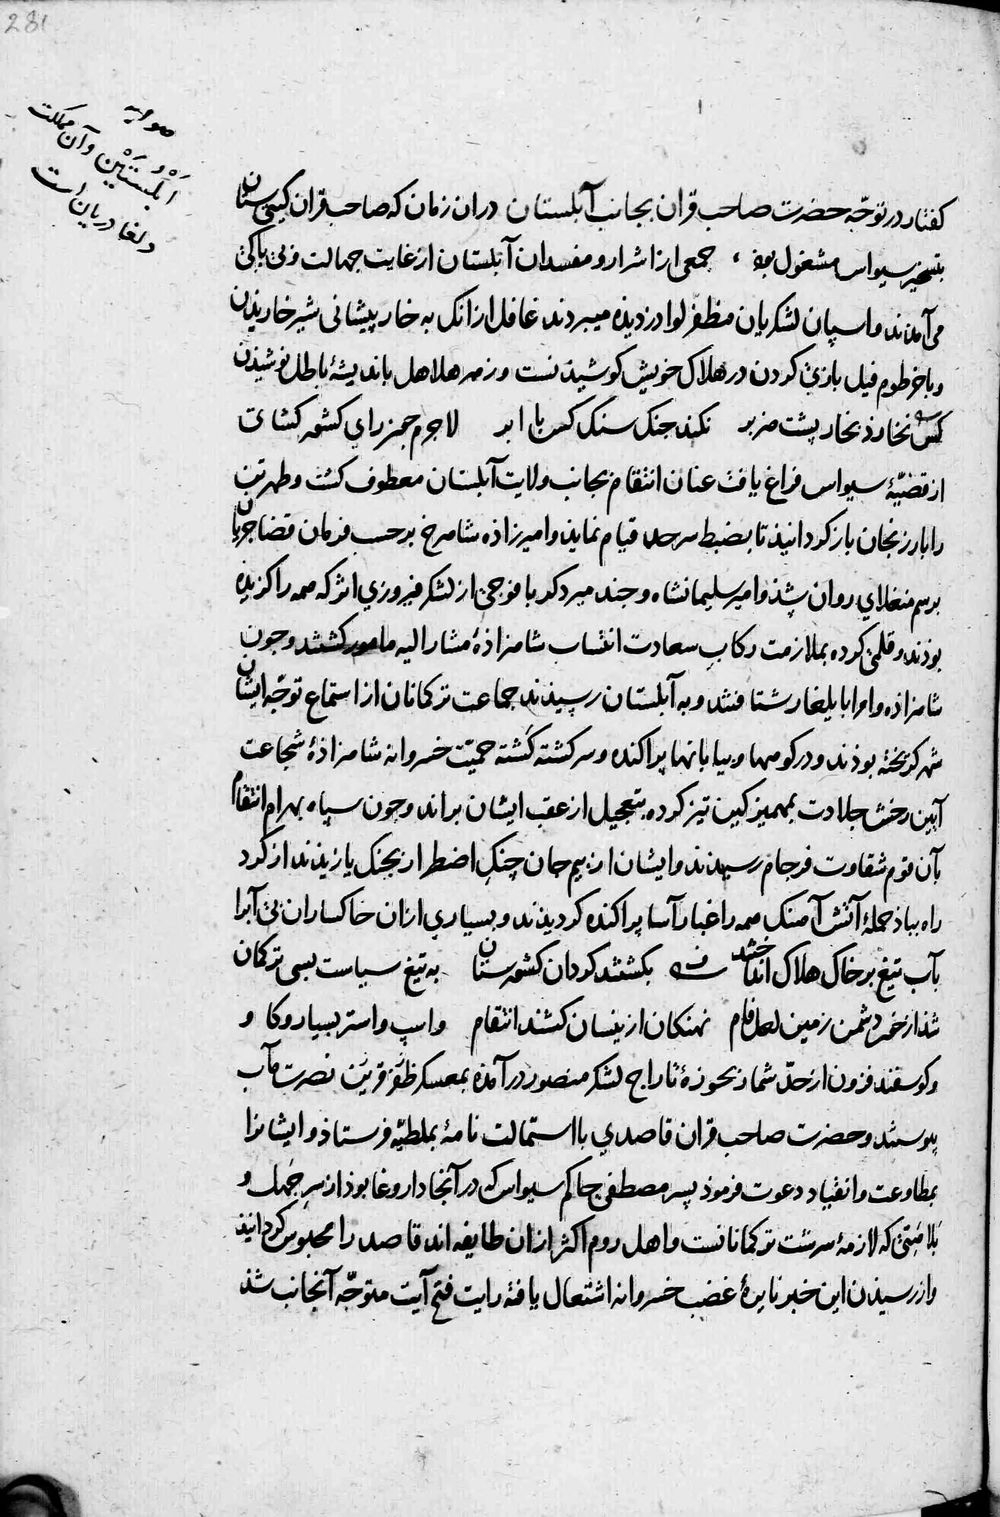 281
صوابه
اَبُلُسْتَیْن وآن مملکت
دلغادریان است
کفتار در توجّه حضرت صاحب قران بجانب آبلستان دران زمان که صاحب قران کیتی ستان
بتسخیر سیواس مشغول بوذ جمعی از اشرار و مفسدان آبلستان از غایت جهالت و بی باکی
می آمدند و اسپان لشکریان مظفر لوا دزدیذه میبردند غافل از انک به خار پیشانی شیر خاریدن
و با خرطوم فیل بازی کردن در هلاک خویش کوشیذنست و زهر هلاهل باندیشهٔ باطل نوشیذن
کس نخارذ بخار پشت هزبر نکند جنک سنک کس با ابر لاجرم جمز رای کشور کشای
از قضیّهٔ سیواس فراغ یافت عنان انتقام بجانب ولایت آبلستان معطوف کشت و طهرتن
را بارزنجان باز کردانیذ تا بضبط سرحد قیام نمایذ و امیرزاذه شاهرخ بر حسب فرمان قضا جریان
برسم منغلای روان شذ و امیر سلیمانشاه و چند میر دکر با فوجی از لشکر فیروزی اثر که همه را کزیذه
بوذند و قلمی کرده بملازمت رکاب سعادت انتساب شاهزاذهٔ مشار الیه مامور کشتند و چون
شاهزاذه و امرا بایلغار شتافتند و به آبلستان رسیذند جماعت ترکمانان از استماع توجّه ایشان
شهر کریخته بوذند و در کوهها و بیابانها پراکنده و سرکشته کشته حمیّت خسروانه شاهزاذهٔ شجاعت
آیین رخش جلادت بمهمیز کین تیز کرده بتعجیل از عقب ایشان براند و چون سپاه بهرام انتقام
بآن قوم شقاوت فرجام رسیدند و ایشان از بیم جان چنک اضطرار بجنک یازیذند از کرد
راه بباذ حملهٔ آتش آهنک همه را غبار آسا پراکنده کردیذند و بسیاری ازان خاکساران بی آب را
بآب تیغ بر خاک هلاک انداختند بکشتند کردان کشور ستان به تیغ سیاست بسی ترکمان
شذ از خون دشمن زمین لعل فام نهنکان ازینسان کشند انتقام و اسپ و استر بسیار و کاو
و کوسفند فزون از حدّ شمار بحوزهٔ تاراج لشکر منصور درآمذه بمعسکر ظفر قرین نصرت مآب
پیوستند و حضرت صاحب قران قاصدی با استمالت نامهٔ بملطیّه فرستاذ و ایشانرا
بمطاوعت و انقیاد دعوت فرموذ پسر مصطفی حاکم سیواس که در آنجا داروغا بوذ از سر جهل و
بلاهتی که لازمهٔ سرشت ترکمانانست و اهل روم اکثر ازان طایفه اند قاصد را محبوس کردانیذ
و از رسیذن این خبر نایرهٔ غضب خسروانه اشتعال یافته رایت فتح آیت متوجّه آنجانب شذ